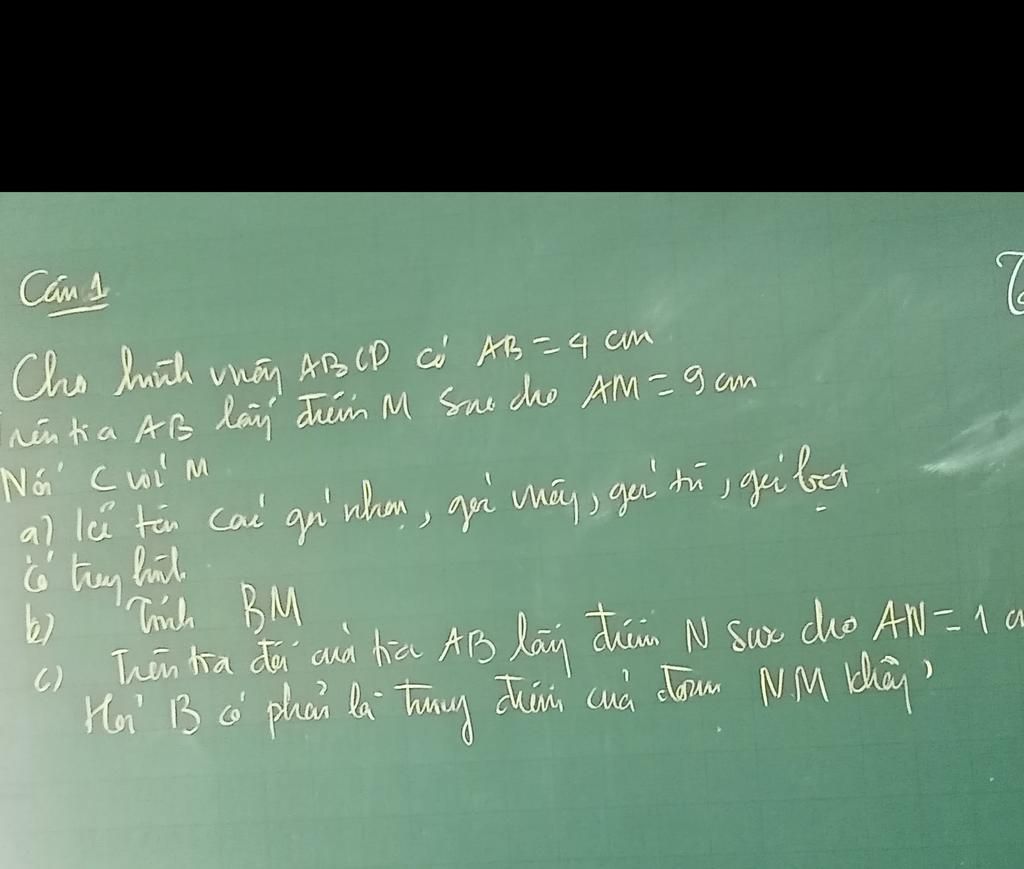 Câu 1
Cho hình vuông ABCD có AB = 4 cm
Trên tia AB lấy điểm M sao cho AM = 9 cm
Nối C với M
a) kể tên các góc nhọn, góc vuông, góc tù, góc bẹt
có trong hình.
b) Tính BM
c) Trên tia đối của tia AB lấy điểm N sao cho AN = 1
Hỏi B có phải là trung điểm của đoạn NM không?